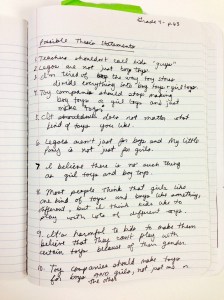 Grade 4 -
Possible Thesis Statements
1. Teachers shouldn't call kids "guys"
2. Legos are not just boy toys
3. I'm tired of the way the stores
divide everything into "boy toys" "girl toys"
4. Toy companies should stop making
boy toys & girl toys and just
make "toys"
5. It does not matter what
kind of toys you like.
6. Legos aren't just for boys and My little
Ponys is not just for girls.
7. I believe there is no such thing
as girl toys and boy toys.
8. Most people think that girls like
one kind of toys and boys like something
different, but I think kids like to
play with lots of different toys.
9. It's harmful to kids to make them
believe that they can't play with
certain toys because of their gender
10. Toy companies should make toys
for boys AND girls, not just one or
the other